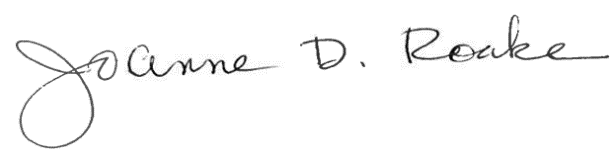 Joanne D. Roake